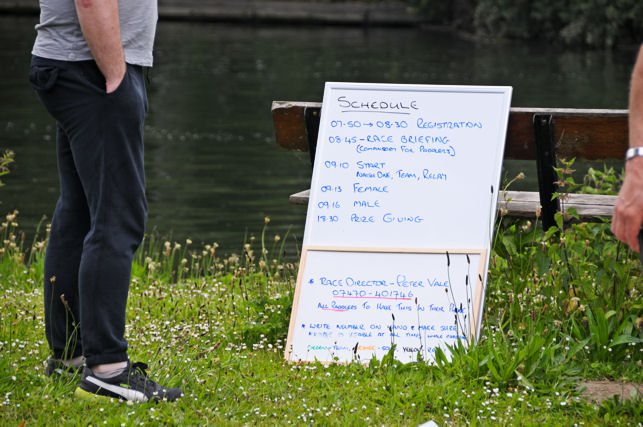 SCHEDULE
07-50 → 08-30 REGISTRATION
08 45 - RACE BRIEFING
(COMPULSORY FOR PADDLERS)
09.10 START
TEAM, RELAY
09.13 FEMALE
09.16 MALE
18:30 PRIZE GIVING
* RACE DIRECTOR - PETER VALE
07470-401746
ALL PADDLERS TO HAVE THIS IN THEIR
* WRITE NUMBER ON HAND & MAKE SURE
NUMBER IS VISABLE AT ALL TIMES